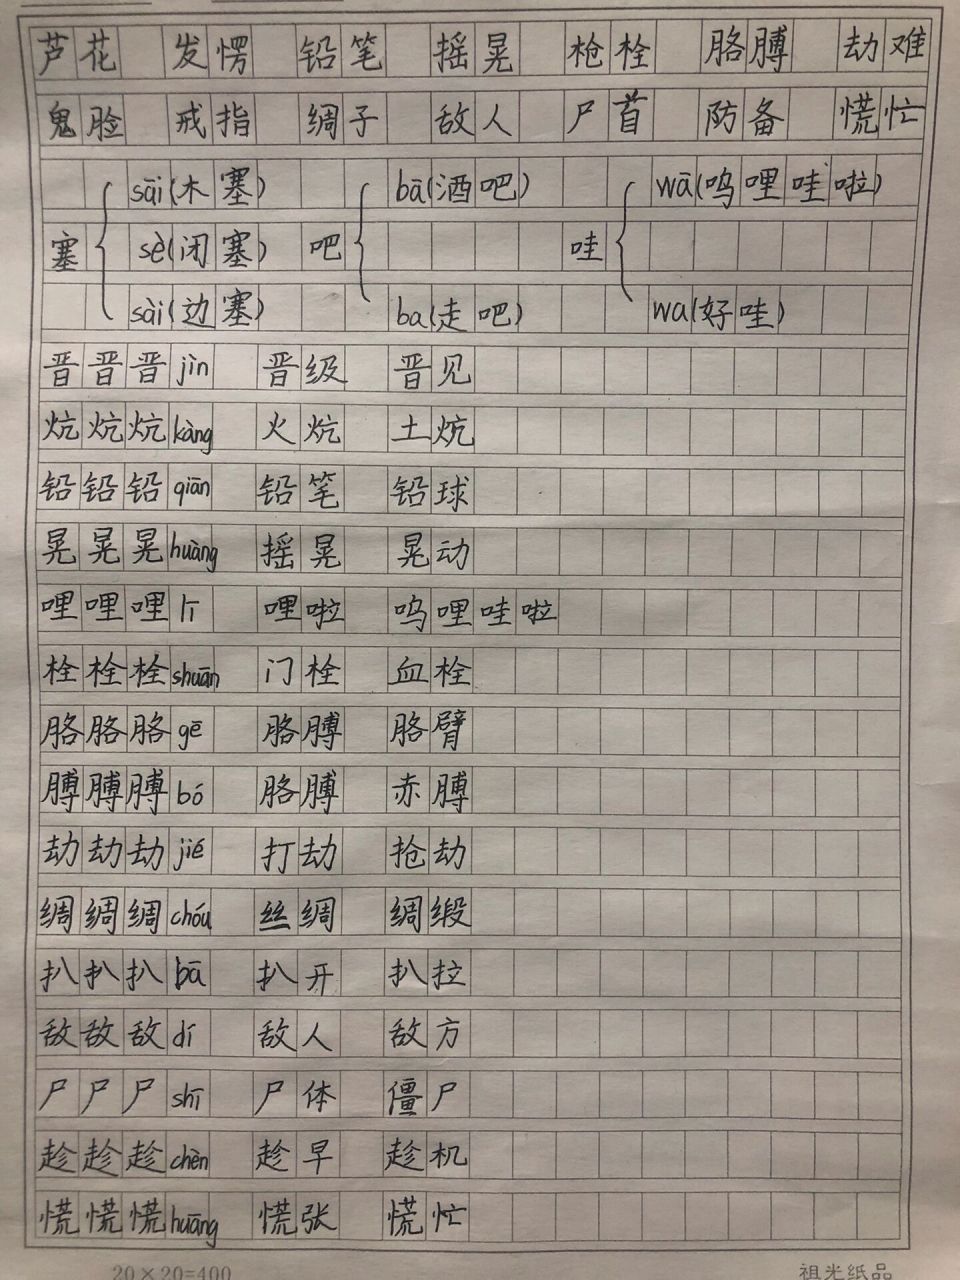 芦花 发愣 铅笔 摇晃 枪栓 胳膊 劫难
鬼脸 戒指 绸子 敌人 尸首 防备 慌忙
sāi(木塞) bā(酒吧) wā(呜哩哇啦)
塞 sè(闭塞) 吧 哇
sài(边塞) ba(走吧) wa(好哇)
晋晋晋jìn 晋级 晋见
炕炕炕kàng 火炕 土炕
铅铅铅qiān 铅笔 铅球
晃晃晃huàng 摇晃 晃动
哩哩哩lī 哩啦 呜哩哇啦
栓栓栓shuān 门栓 血栓
胳胳胳gē 胳膊 胳臂
膊膊膊bó 胳膊 赤膊
劫劫劫jié 打劫 抢劫
绸绸绸chóu 丝绸 绸缎
扒扒扒bā 扒开 扒拉
敌敌敌dí 敌人 敌方
尸尸尸shī 尸体 僵尸
趁趁趁chèn 趁早 趁机
慌慌慌huāng 慌张 慌忙
20×20=400 祖光纸品